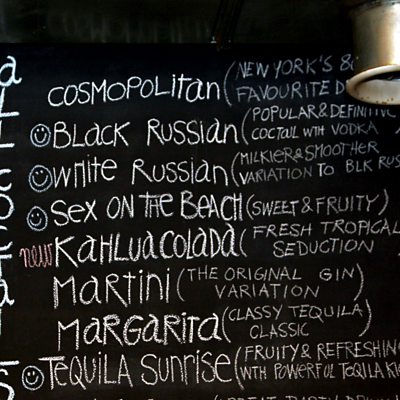 COSMOPOLITAN (NEW YORK'S &
FAVOURITE D
BLACK RUSSIAN (POPULAR & DEFINITIVE
COCTAIL WITH VODKA
WHITE RUSSIAN (MILKIER & SMOOTHER
VARIATION TO BLK RUS
SEX ON THE BEACH (SWEET & FRUITY)
new KAHLUA COLADA (FRESH TROPICAL
SEDUCTION
MARTINI (THE ORIGINAL GIN)
VARIATION
MARGARITA (CLASSY TEQUILA)
CLASSIC
TEQUILA SUNRISE (FRUITY & REFRESHING
WITH POWERFUL TEQUILA KI